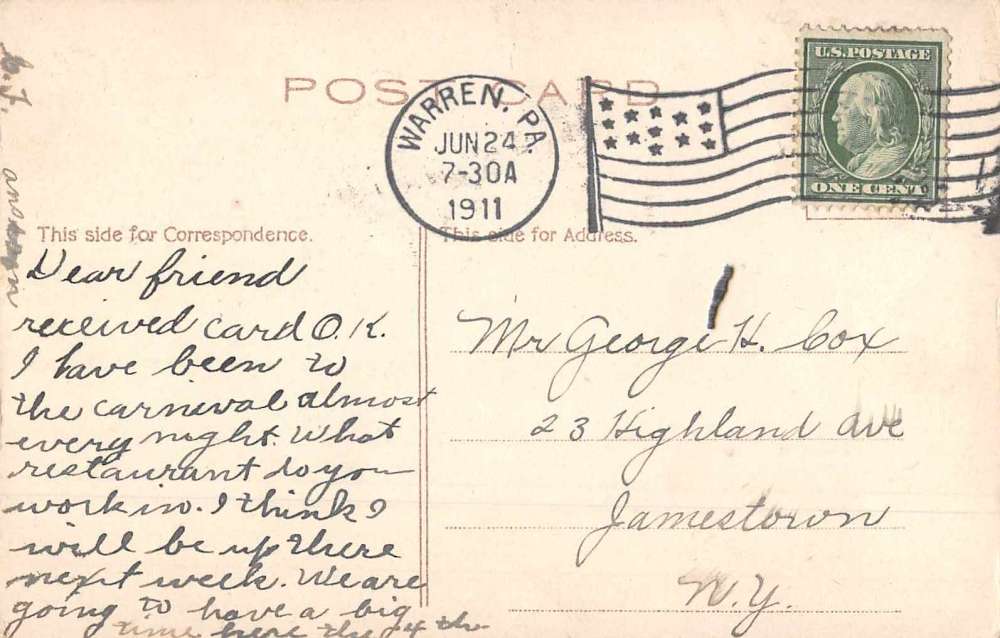 POST CARD
WARREN, PA.
JUN 24
7-30A
1911
U.S. POSTAGE
ONE CENT
This side for Correspondence.
Dear friend
received card O.K.
I have been to
the carnival almost
every night. What
restaurant do you
work in. I think I
will be up there
next week. We are
going to have a big
time here the 4 th
This side for Address.
Mr George H. Cox
23 Highland ave
Jamestown
N.Y.